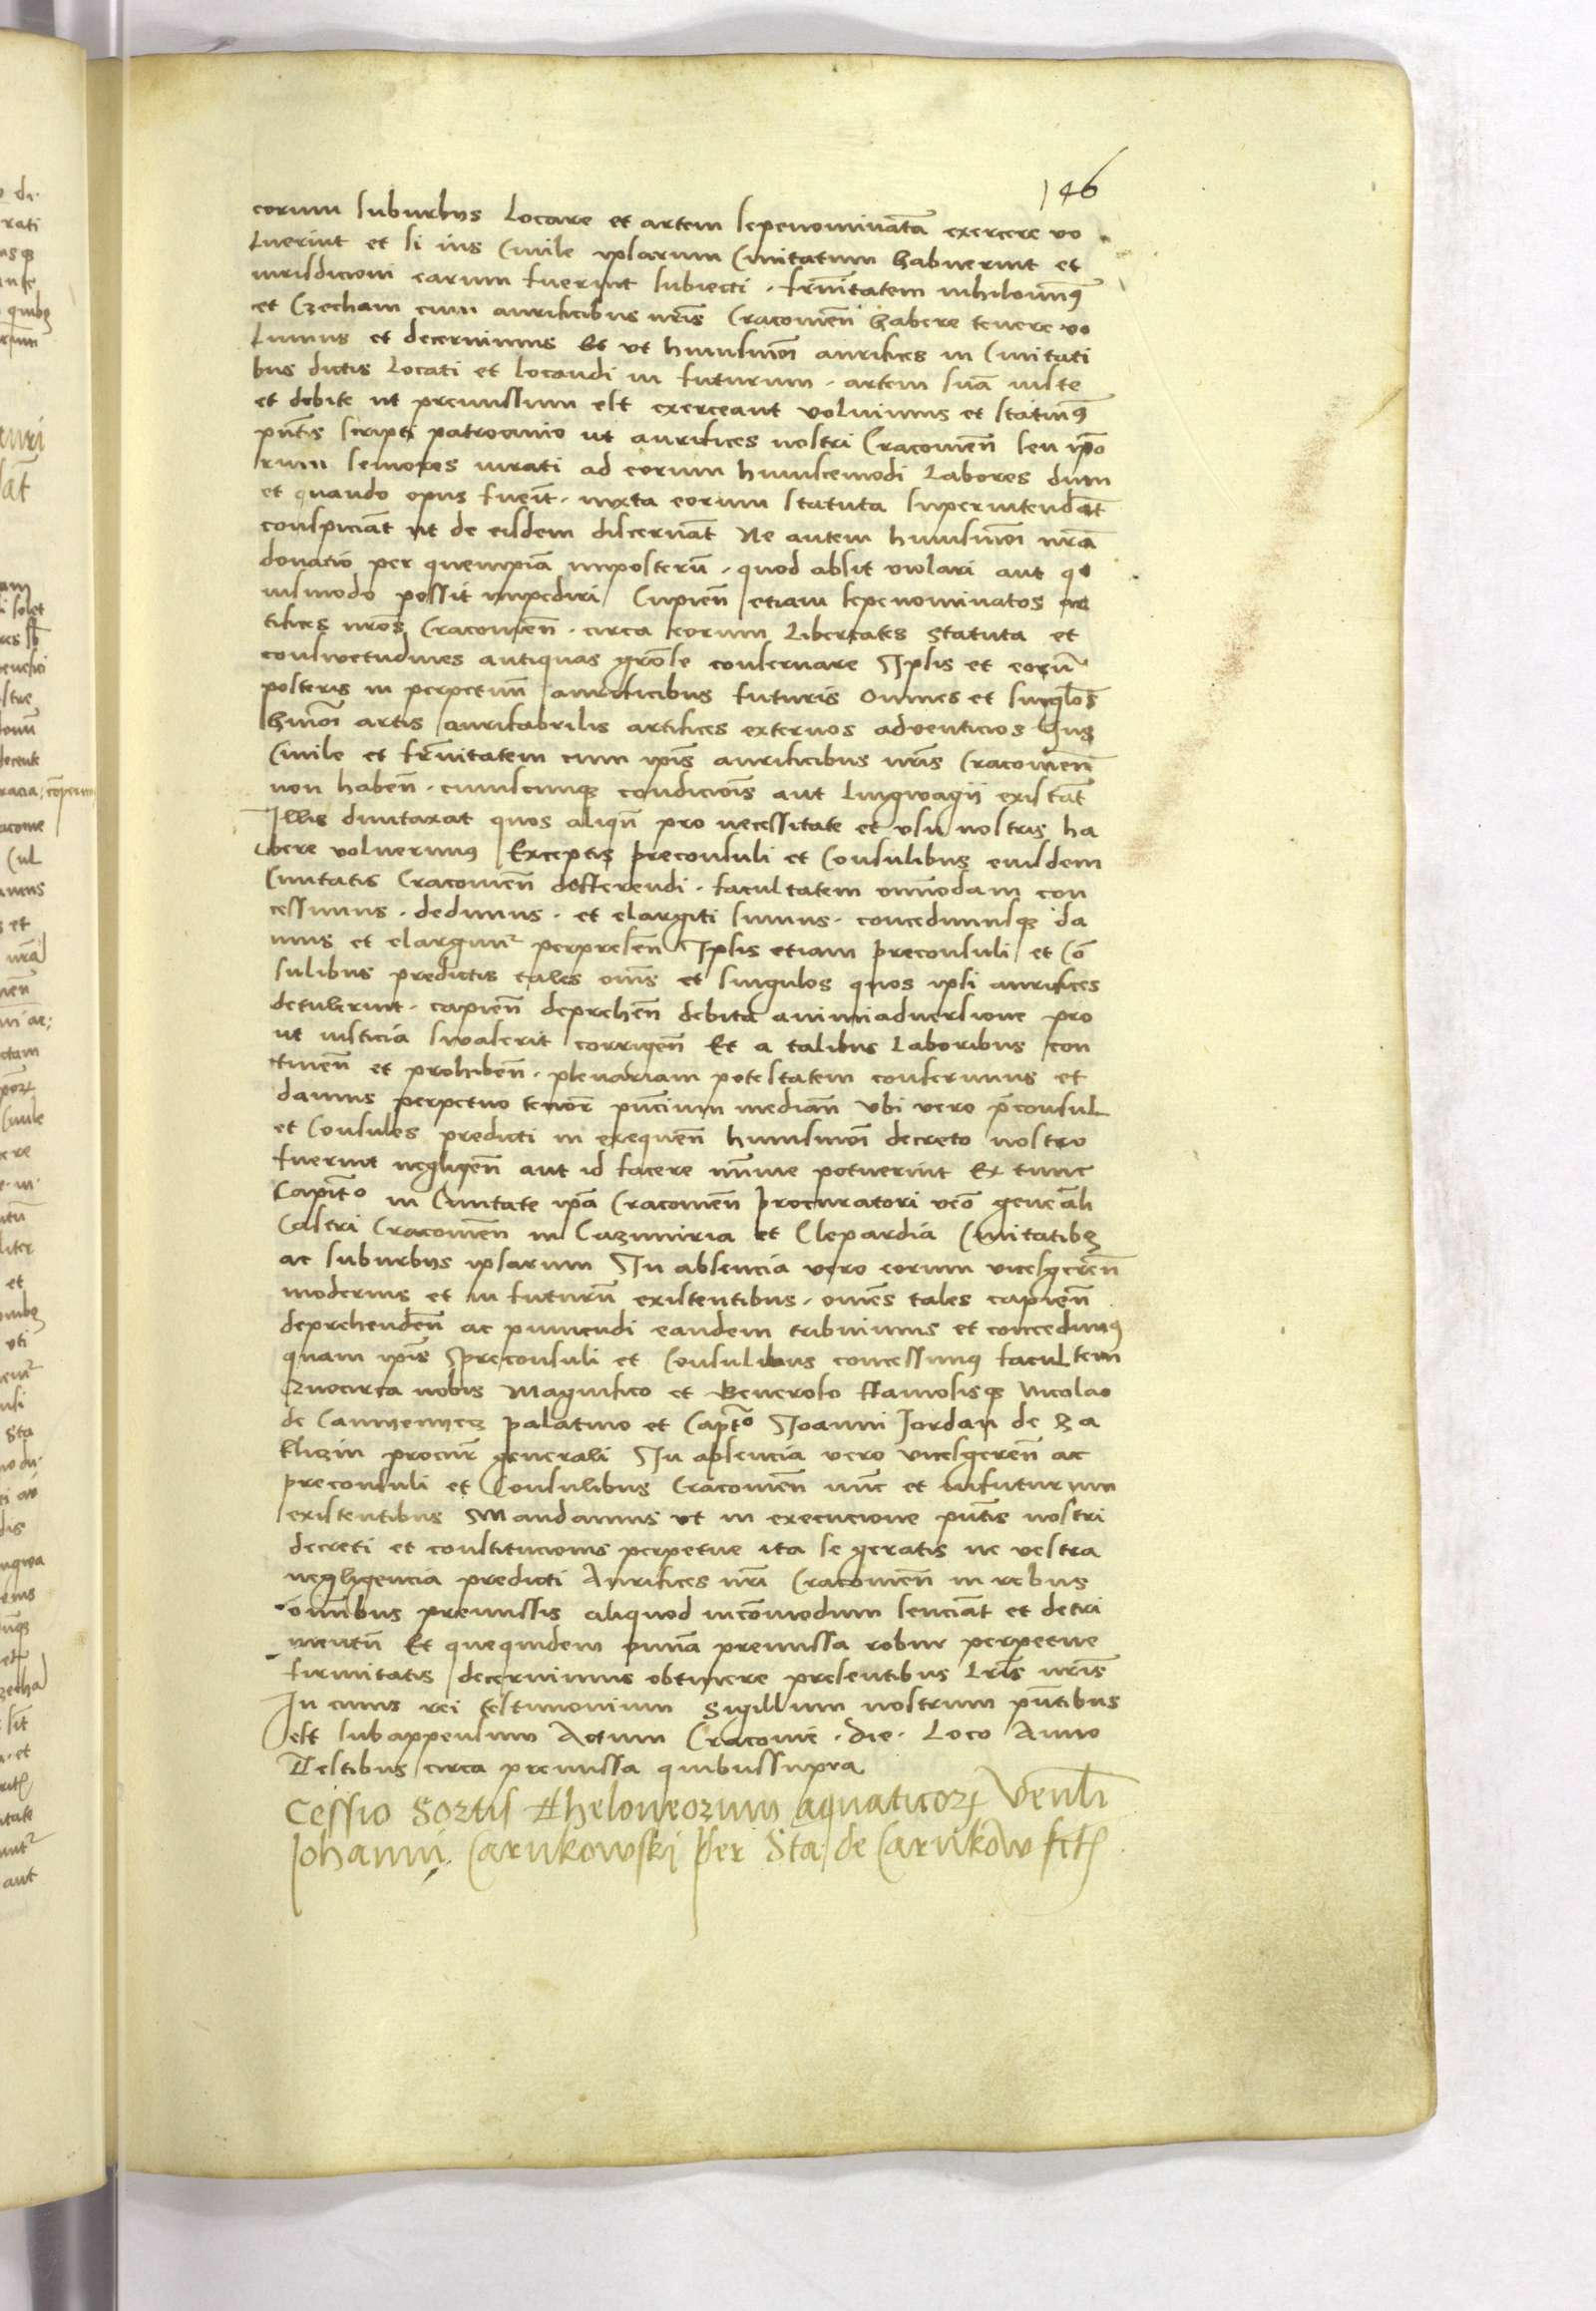 146
eorum suburbijs locare et artem sepenominatã exercere vo
luerint et si ius Ciuile ipsarum Ciuitatum habuerint et
iurisdicioni earum fuerint subiecti . frñitatem nihilominq
et Czecham cum aurificibus nr̃is Cracouieñ habere tenere vo
lumus et decernimus Et vt huiusmõi aurifices in Ciuitati
bus dictis locati et locandi in futurum . artem suã iuste
et debite ut premissum est exerceant volumus et statuimq
pñtis scripti patrocinio ut aurifices nostri Cracouieñ seu ipõ
rum seniores iurati ad eorum huiuscemodi labores dum
et quando opus fuerit . iuxta eorum statuta superintendãt
conspiciãt ut de eisdem discernãt Ne autem huiusmõi nr̃a
donatio per quempiã imposterũ . quod absit violari aut qo
uismodo possit impediri Cupieñ etiam sepenominatos ar
tifices nr̃os Cracouieñ . circa eorum libertates statuta et
consuetudines antiquas grõse conseruare Ipsis et eorũ
posteris in perpetuũ aurificibus futuris Omnes et singlõs
hmõi artis aurifabrilis artifices externos aduenticios Ius
Ciuile et frñitatem cum ip̃is aurificibus nr̃is Cracouieñ
non habeñ . cuiuscunq condicionis aut lingwagij existãt
Illis duntaxat quos aliqñ pro necessitate et vsu nostris ha
bere voluerimus Exceptis preconsuli et Consulibus eiusdem
Ciuitatis Cracouieñ defferendi . facultatem omnimodam con
cessimus . dedimus . et elargiti sumus . concedimusq da
mus et elargimur perpreseñ Ipsis etiam preconsuli et Cõ
sulibus predictis tales om̃s et singulos quos ipsi aurifices
detulerint . capieñ depreheñ debita animiaduersione pro
ut iusticia swaserit corrigeñ Et a talibus laboribus con
tineñ et prohibeñ . plenariam potestatem conferimus et
damus perpetuo tenore pñcium mediañ Vbi vero p̃consul
et Consules predicti in exequeñ huiusmõi decreto nostro
fuerint negligeñ aut id facere minime potuerint Ex tunc
Capitõ in Ciuitate ip̃a Cracouieñ procuratori vero geneãli
Castri Cracouieñ in Cazimiria et Clepardia Ciuitatibus
ac suburbijs ipsarum In absencia vero eorum vicesgereñ
modernis et in futurũ existentibus . om̃es tales capieñ
deprehendeñ ac puniendi eandem tribuimus et concedimq
quam ip̃is preconsuli et Consulibus concessimq facultem
Quocirca vobis Magnifico et Generoso ffamosisq Nicolao
de Camyenyecz palatino et Captõ Ioanni Jordan de Za
kliczin procur̃ generali In absencia vero vicesgereñ ac
preconsuli et Consulibus Cracouieñ nũc et infuturum
existentibus Mandamus vt in execucione pñtis nostri
decreti et constitucionis perpetue ita se geratis ne vestra
negligencia predicti Aurifices nr̃i Cracouieñ in rebus
om̃ibus premissis aliquod incõmodum senciãt et detri
mentũ Et quequidem om̃ia premissa robur perpetue
firmitatis decernimus obtinere presentibus lr̃is nr̃is
In cuius rei testimonium Sigillum nostrum pñtibus
est subappensum Actum Cracouie . die . loco Anno
Testibus circa premissa quibussupra
Cessio Sortis Theloneorum aquaticor Venli
Johanni Carnkowski per Sta de Carnkow fct